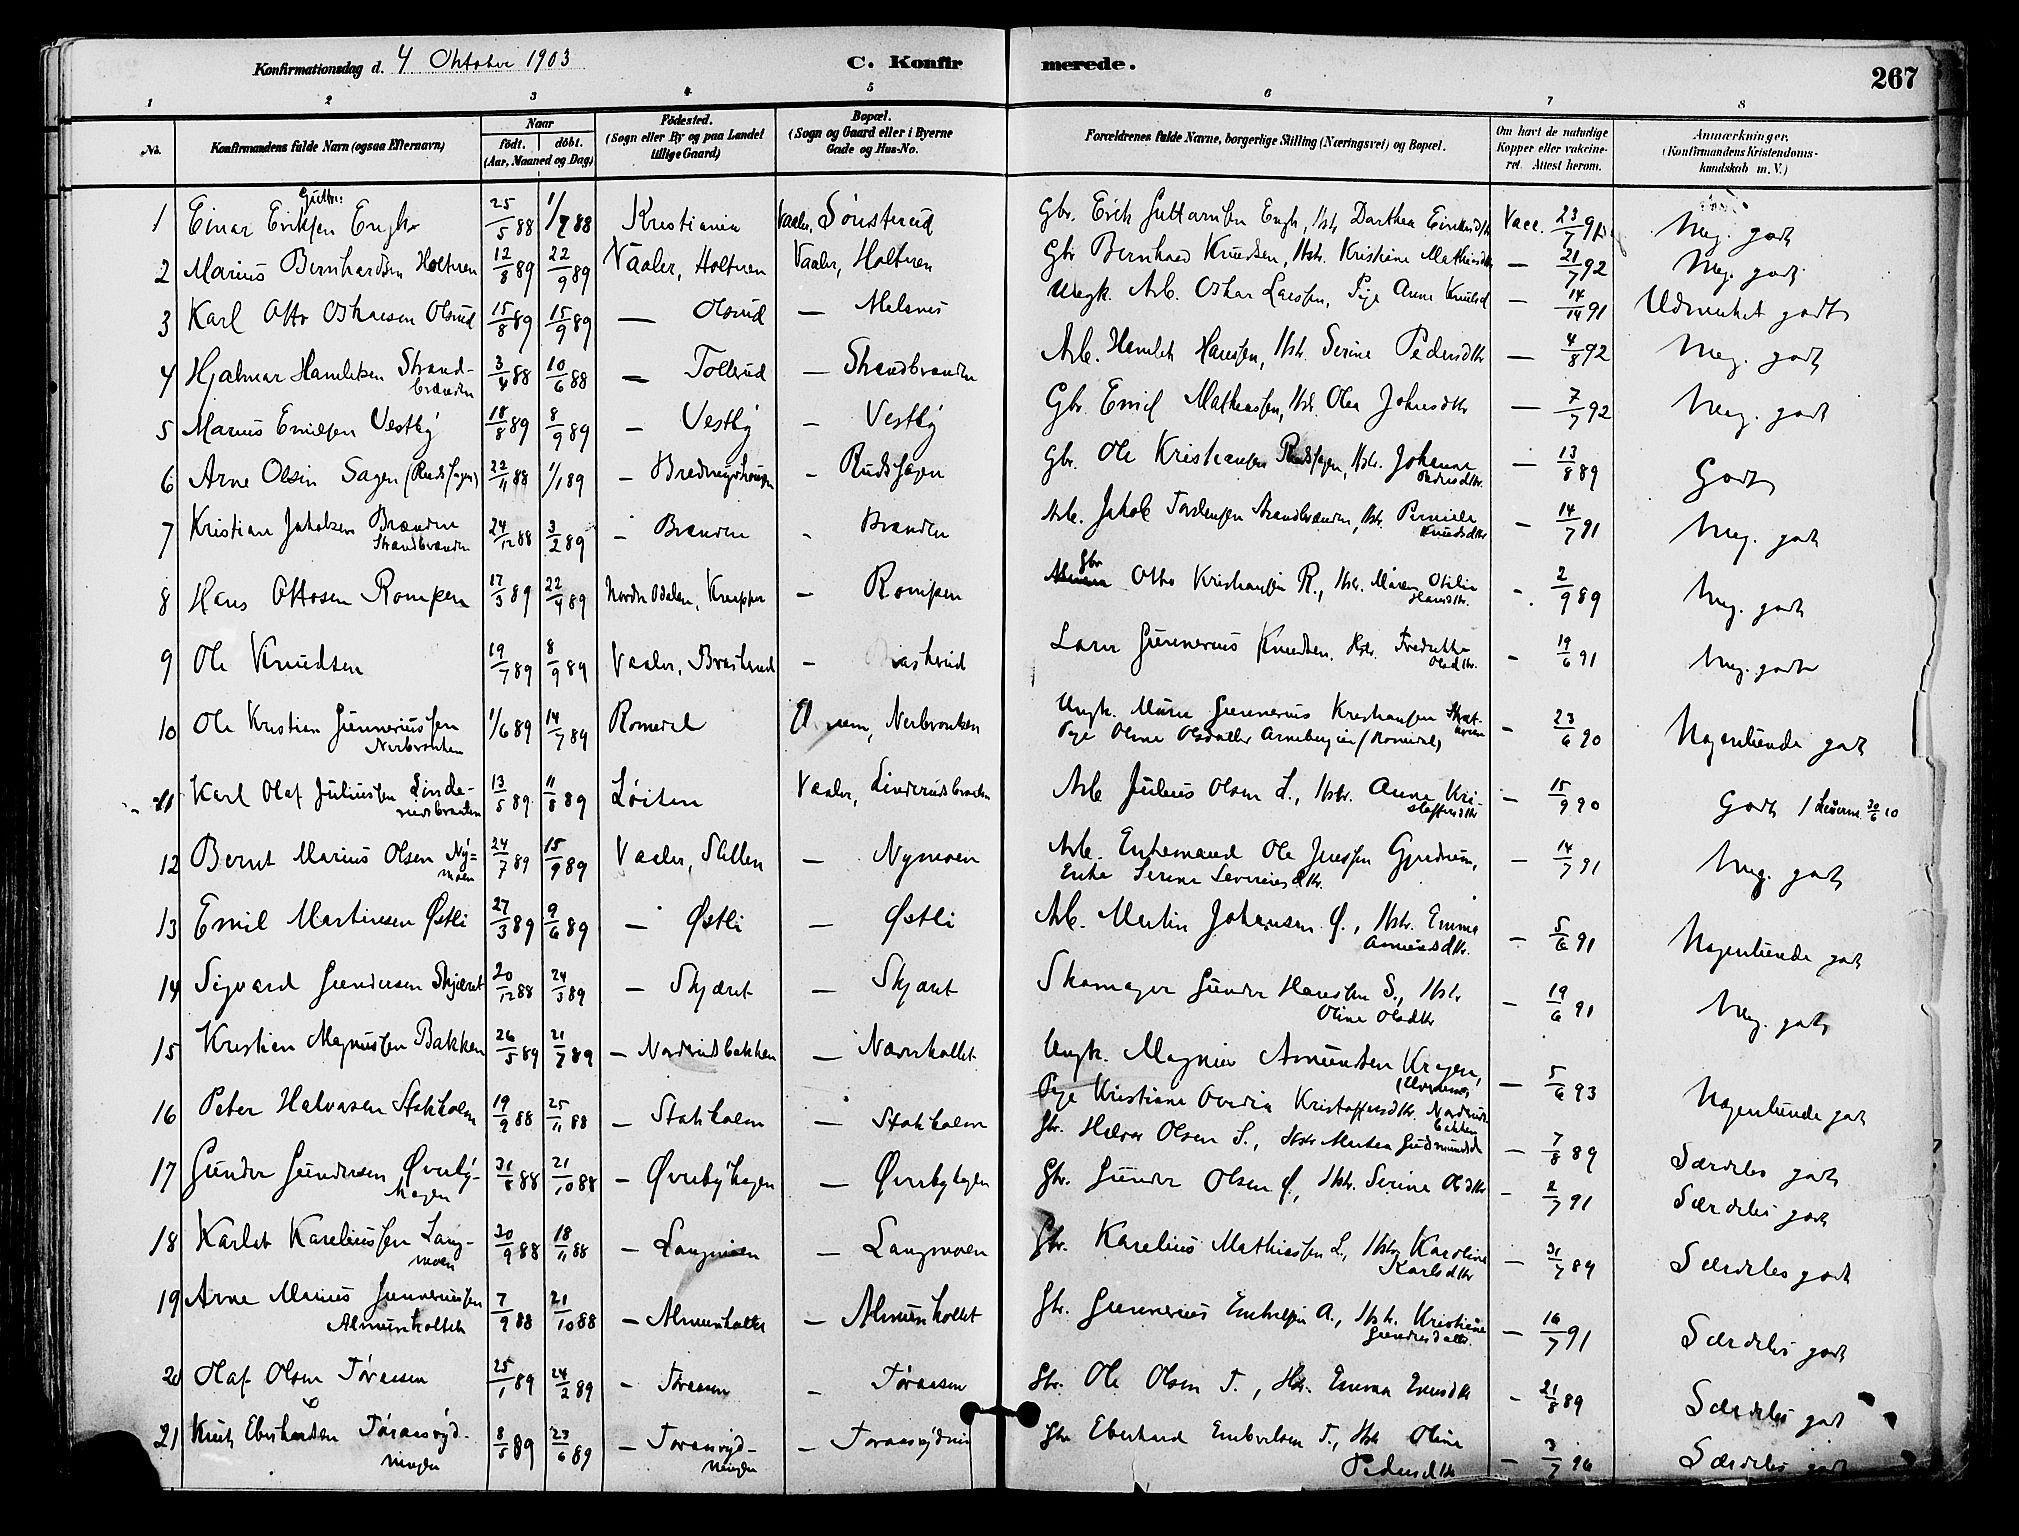 Konfirmationsdag d. 4 Oktober 1903 C. Konfirmerede. 267
1 2 3 4 5 6 7 8
No. Konfirmandens fulde Navn (ogsaa Efternavn) Naar født. døbt. (Aar, Maaned og Dag) Fødested. (Sogn eller By og paa Landet tillige Gaard) Bopæl. (Sogn og Gaard eller i Byerne Gade og Hus-No. Forældrenes fulde Navne, borgerlige Stilling (Næringsvei) og Bopæl. Om havt de naturlige Kopper eller vakcineret. Attest herom. Anmærkninger. (Konfirmandens Kristendomskundskab m. V.)
1 Einar Eriksen Engh 25/5 88 1/7 88 Kristiania Vaaler, Sønsterud Gbr. Erik Guttormsen Engh, Hstr. Darthea Vacc. 23/7 Meg. godt
2 Marius Bernhardsen Holteren 12/8 89 22/9 89 Vaaler, Holteren Vaaler, Holteren Gbr Bernhard Knudsen, Hstr. Kristiane Mathiasdtr — 21/7 92 Meg. godt
3 Karl Otto Oskarsen Olsrud 15/8 89 15/9 89 — Olsrud — Melsnes Ungk. Arb. Oskar Larssen, Pige Anne Knutsd — 14/14 91 Udmerket godt
4 Hjalmar Hamletsen Strandbrænden 3/4 88 10/6 88 — Tollerud — Strandbranden Arb. Hamlet Hanssen, Hstr. Serine Pedersdtr — 4/8 92 Meg. godt
5 Marius Emilsen Vestby 18/8 89 8/9 89 — Vestby — Vestby Gbr. Emil Mathiassen, Hstr. Olea Johnsdtr — 7/7 92 Meg. godt
6 Arne Olsen Sagen (Rudssagen) 22/11 88 1/1 89 — — Rudssagen Gbr. Ole Kristiansen Rudssagen, Hstr. Johanne Pedersdtr. — 13/8 89 Godt
7 Kristian Jakobsen Brænden Strandbrænden 24/12 88 3/2 89 — Brænden - Brænden Arb. Jakob Torstensen Strandbrænden, Hstr. Pernille Knudsdtr — 14/7 91 Meg. godt
8 Hans Ottosen Rompen 17/3 89 22/4 89 Nordre Odalen, Knapper — Rompen Gbr Otto Kristiansen R., Hstr. Maren Otilie Hansdtr. - 2/9 89 Meg. godt
9 Ole Knudsen 19/7 89 8/9 89 Vaaler, Brasterud — Brasterud Gunnerius Knudsen, Hstr. Fredrikke Olsdtr. - 19/6 91 Meg. godt
10 Ole Kristian Gunneriussen Nerbraaten 1/6 89 14/7 89 Romedal Elverum, Nerbraaten Ungk. Gunnerius Kristiansen
Pige Oline Olsdatter Arneberg (Romedal) - 23/6 90 Nogenlunde godt
11 Karl Olaf Juliussen Linderudsbraaten 13/5 89 11/8 89 Løiten Vaaler, Linderudsbraaten Arb Julius Olsen L., Hstr. Anne Kristoffersdtr — 15/9 90 Godt
12 Bernt Marius Olsen Nymoen 24/7 89 15/9 89 Vaaler, — Nymoen Arb. Enkemand Ole Jenssen
Enke Serine Severinsdtr. — 14/7 91 Meg. godt
13 Emil Martinsen Østli 27/3 89 9/6 89 — Østli — Østli Arb. Martin Johansen Ø., Hstr. Emma - 5/6 91 Nogenlunde godt
14 Sigvard Gundersen Skjæret 20/12 88 24/3 89 — Skjæret — Skjæret Skomager Gunder Hanssen S., Hstr Oline Olsdtr - 19/6 91 Meg. godt
15 Kristian Magnussen Bakken 26/5 89 21/7 89 — Nordrudbakken — Navnkollet Ungk. Magnus Amundsen
Pige Kristiane Ovedia Kristoffersdtr. Nordrudbakken — 5/6 93 Nogenlunde godt
16 Peter Halvorsen Stokholm 19/9 88 25/11 88 — Stokholm — Stokholm Gbr. Halvor Olsen S., Hstr Marthea Gudmundsd — 7/8 89 Særdeles godt
17 Gunder Gundersen Øverbyhagen 31/8 88 21/10 88 — Øverbyhagen — Øverbyhagen Gbr. Gunder Olsen Ø., Hstr. Serine Olsdtr - 2/7 91 Særdeles godt
18 Karlot Kareliussen Langmoen 30/9 88 18/11 88 — Langmoen — Langmoen Gbr. Karelius Mathiassen L., Hstr Karoline Karlsdtr — 31/7 89 Særdeles godt
19 Arne Marius Gunneriussen Almenkollet 7/9 88 21/10 88 — Almenkollet — Almenkollet Gbr. Gunnerius Embretsen A., Hstr. Kristiane Gundersdatter. — 16/7 91 Særdeles godt
20 Olaf Olsen Tøraasen 25/1 89 24/2 89 — Tøraasen — Tøraasen Gbr. Ole Olsen T., Hstr. Emma Evensdtr - 21/8 89 Særdeles godt
21 Knut Eberhardsen Tøraasrydningen 8/5 89 23/6 89 — Toraasrydningen — Toraasrydnin Gbr Eberhard Embretsen T., Hstr Oline Pedersdtr — 3/7 96 Særdeles godt